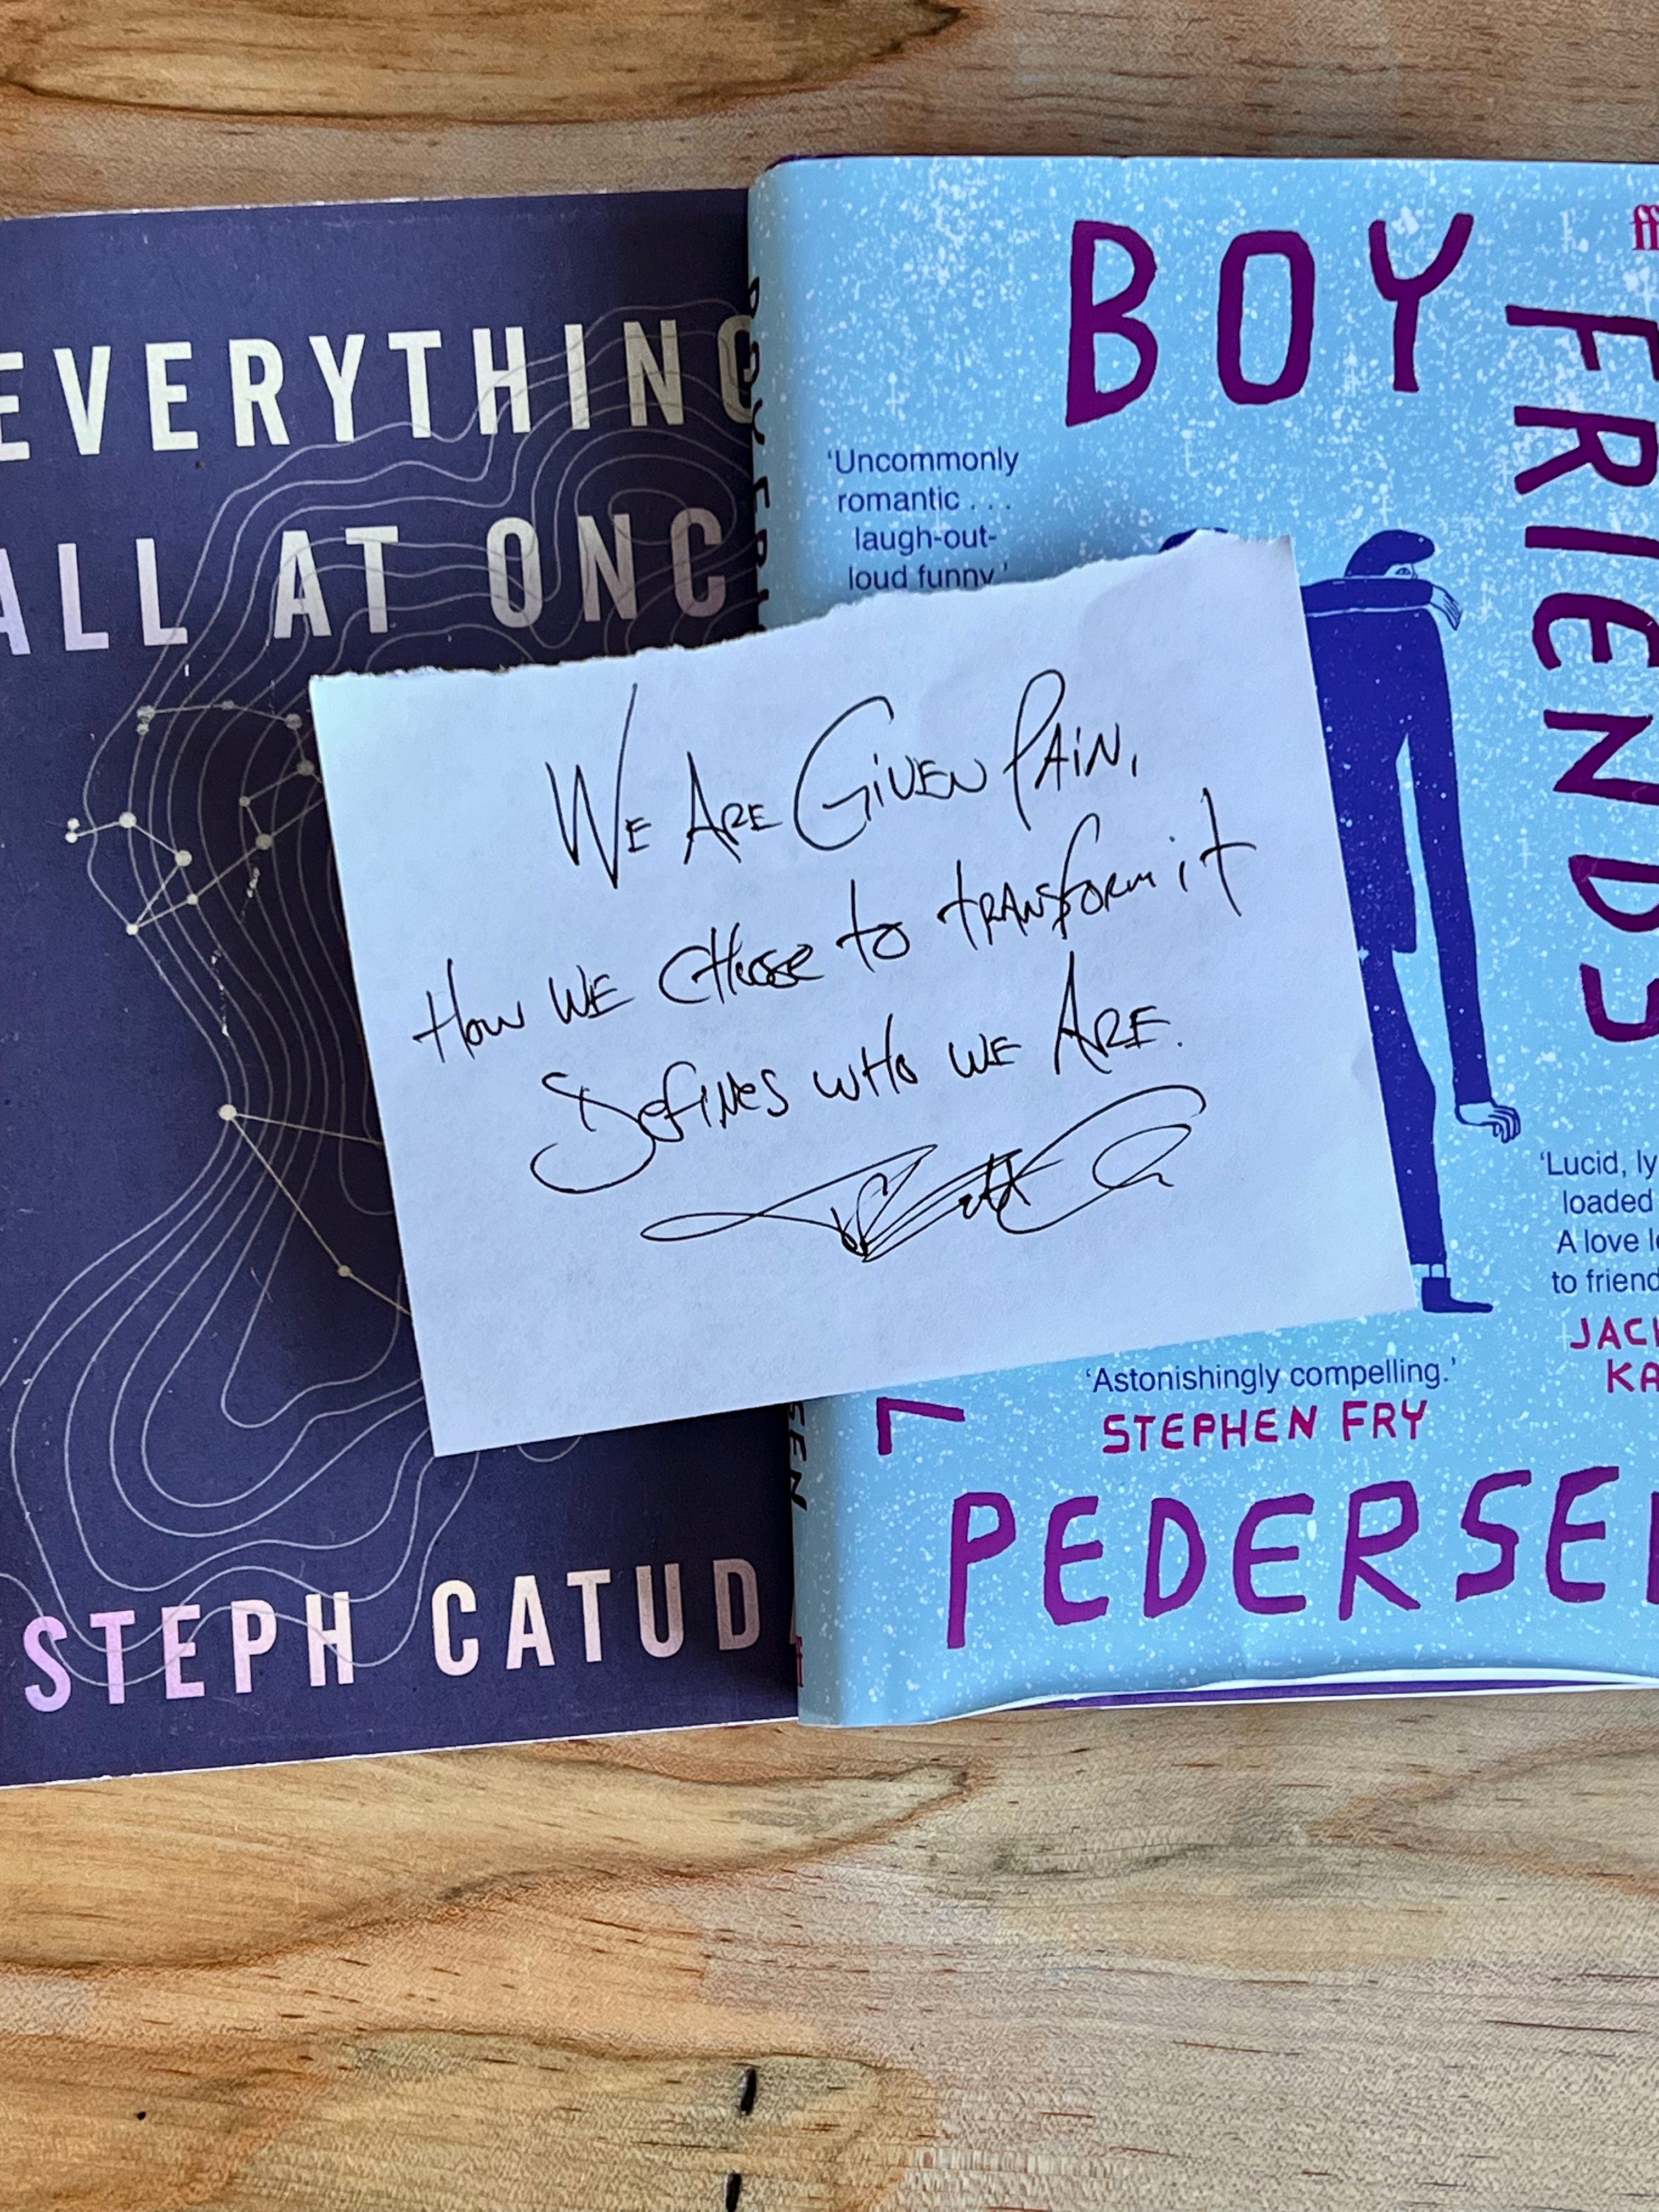 EVERYTHING
ALL AT ONC
STEPH CATUD
BOY
FRIENDS
ff
‘Uncommonly
romantic . . .
laugh-out-
loud funny.’
We Are Given Pain,
How we choose to transform it
Defines who we Are.
‘Lucid, ly
loaded
A love le
to friend
JACK
KA
‘Astonishingly compelling.’
STEPHEN FRY
PEDERSEN